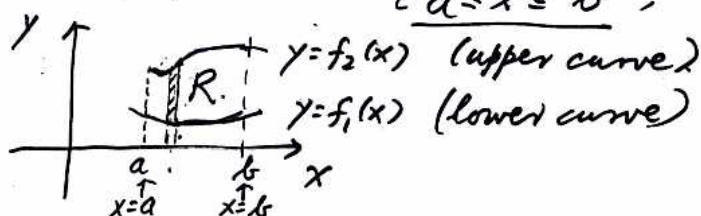 a ≤ x ≤ b
y
y=f₂(x) (upper curve)
R.
y=f₁(x) (lower curve)
a b x
x=a x=b